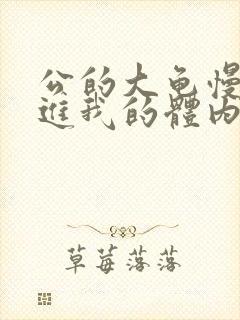 公的大龟慢
進我的體内
草莓落落